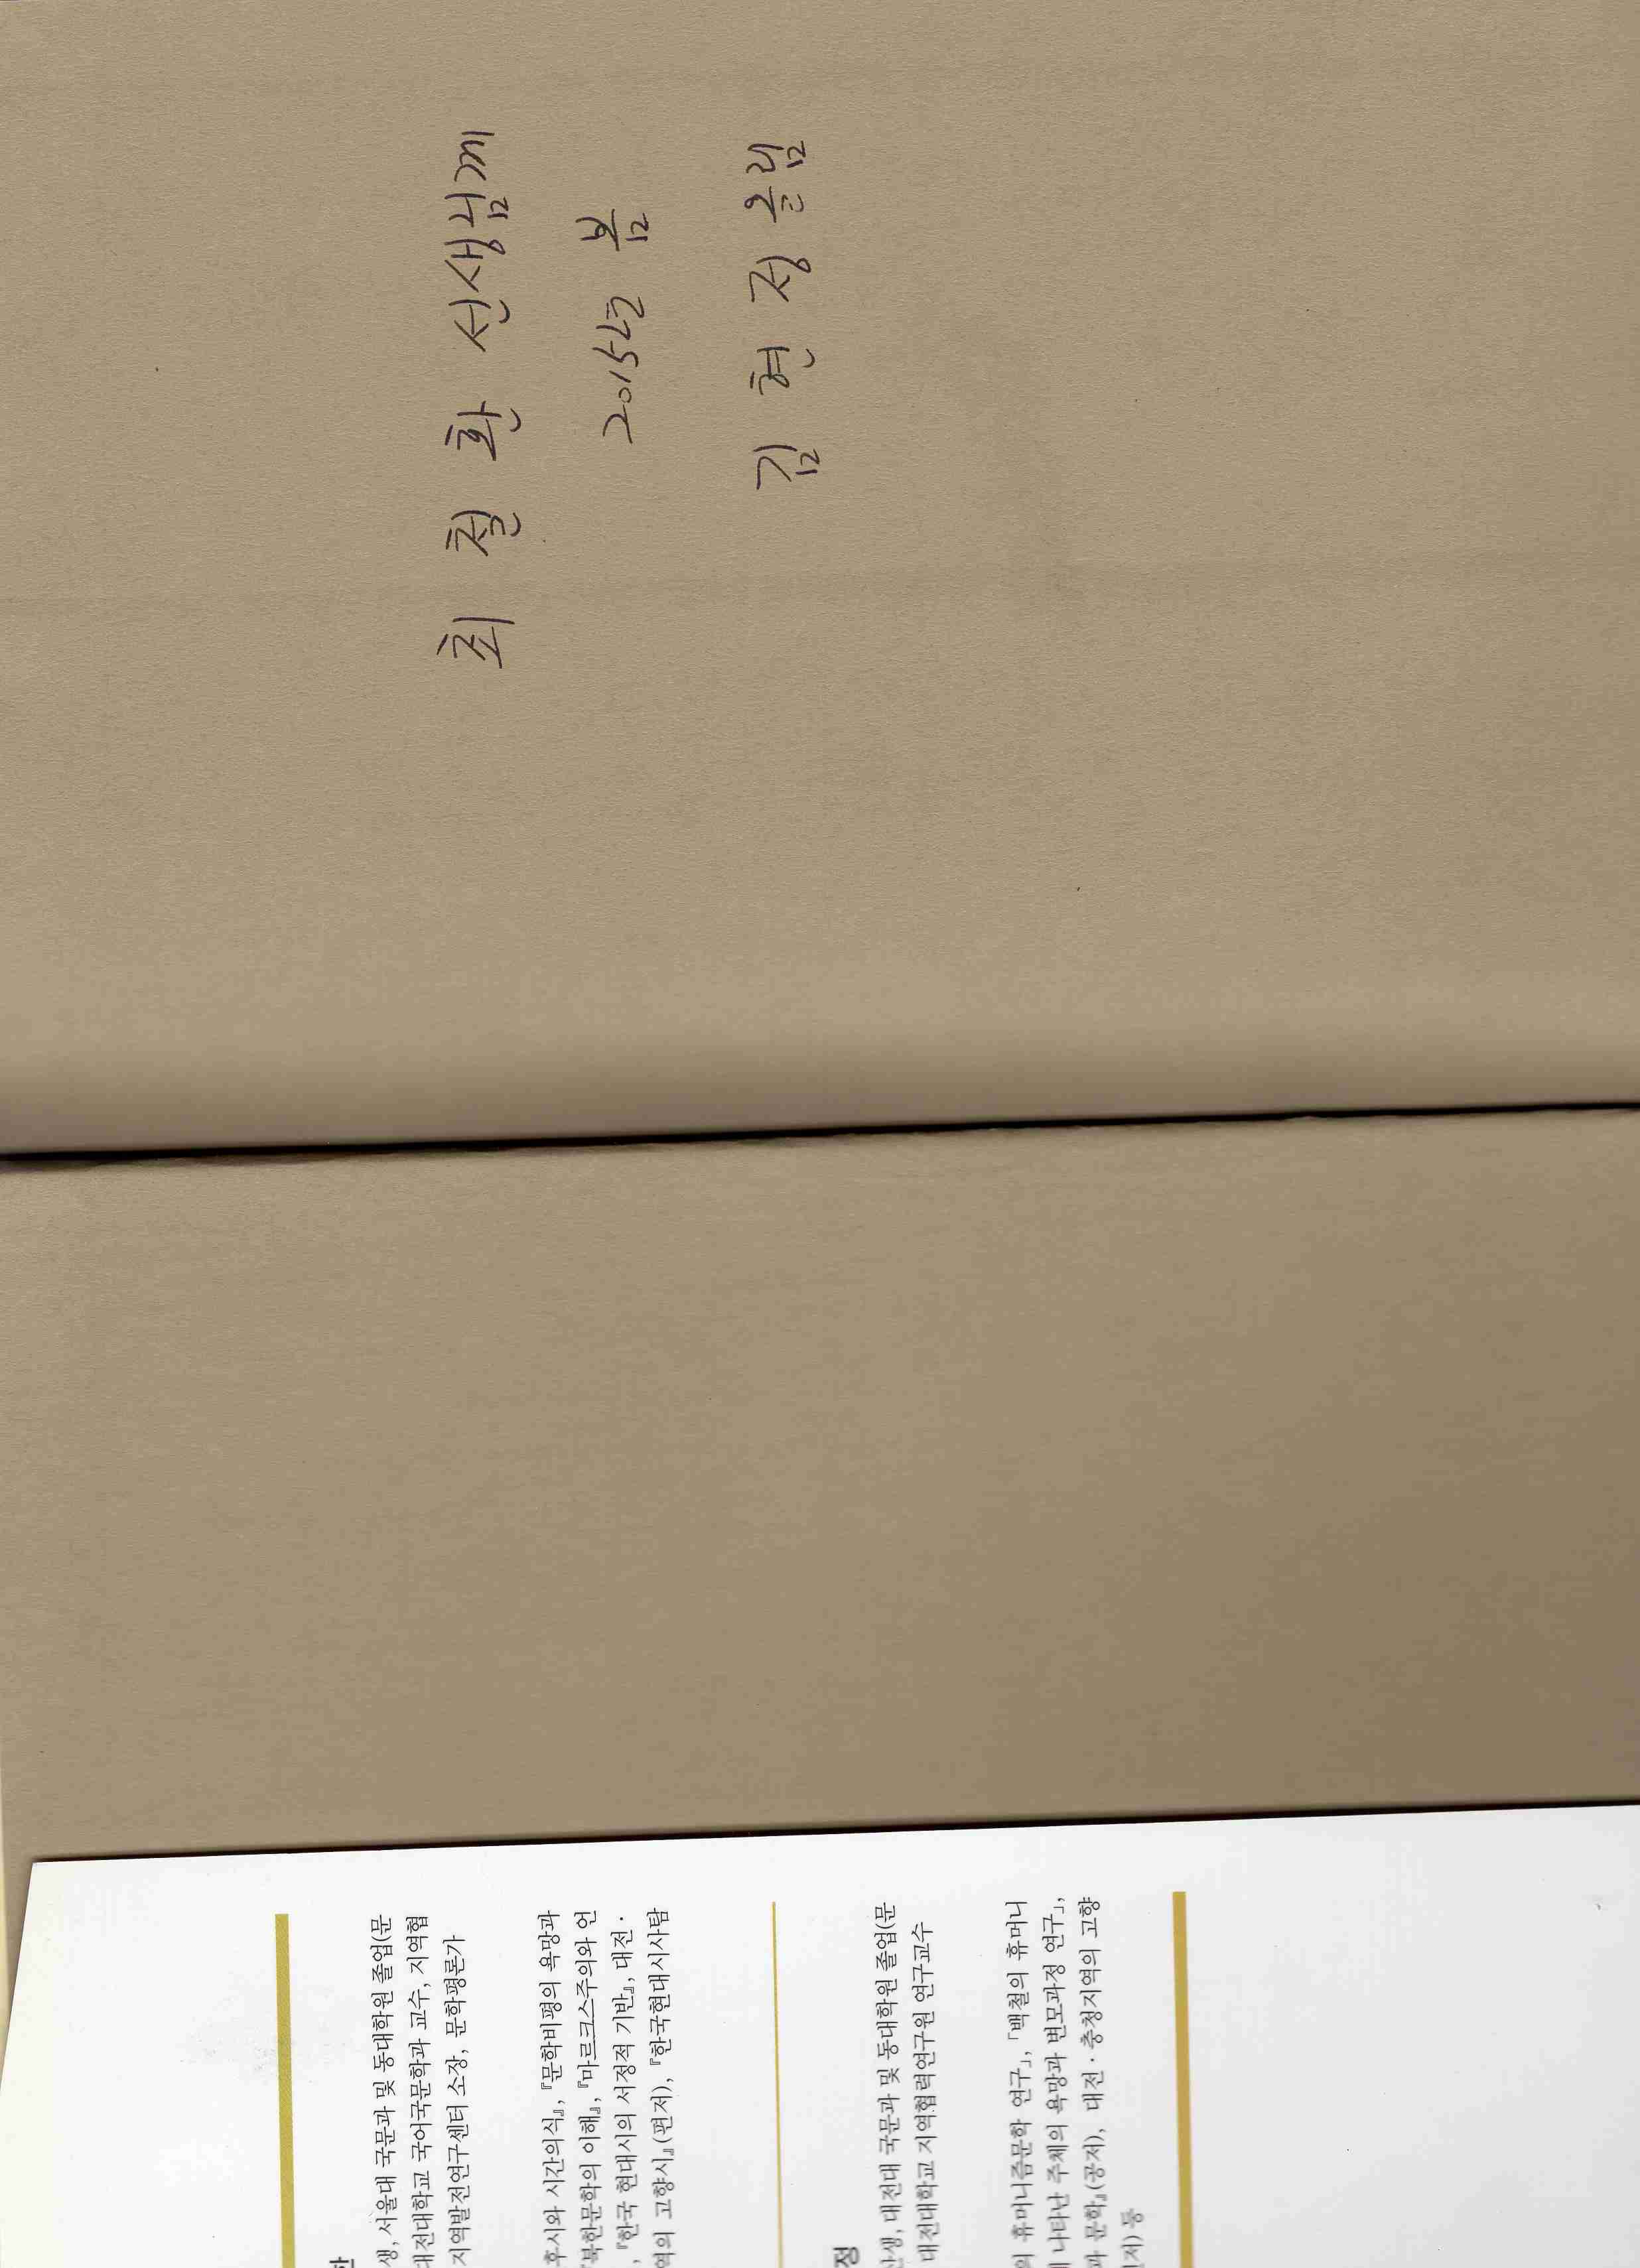 최 철 환 선생님께
2015년 봄
김 현 정 올림
한
생, 서울대 국문과 및 동대학원 졸업(문
대전대학교 국어국문학과 교수, 지역협
지역발전연구센터 소장, 문학평론가
후시와 시간의식』, 『문학비평의 욕망과
『북한문학의 이해』, 『마르크스주의와 언
, 『한국 현대시의 서정적 기반』, 대전·
역의 고향시』(편저), 『한국현대시사탐
정
산생, 대전대 국문과 및 동대학원 졸업(문
대전대학교 지역협력연구원 연구교수
의 휴머니즘문학 연구」, 「백철의 휴머니
에 나타난 주체의 욕망과 변모과정 연구」,
과 문학』(공저), 대전·충청지역의 고향
편저) 등